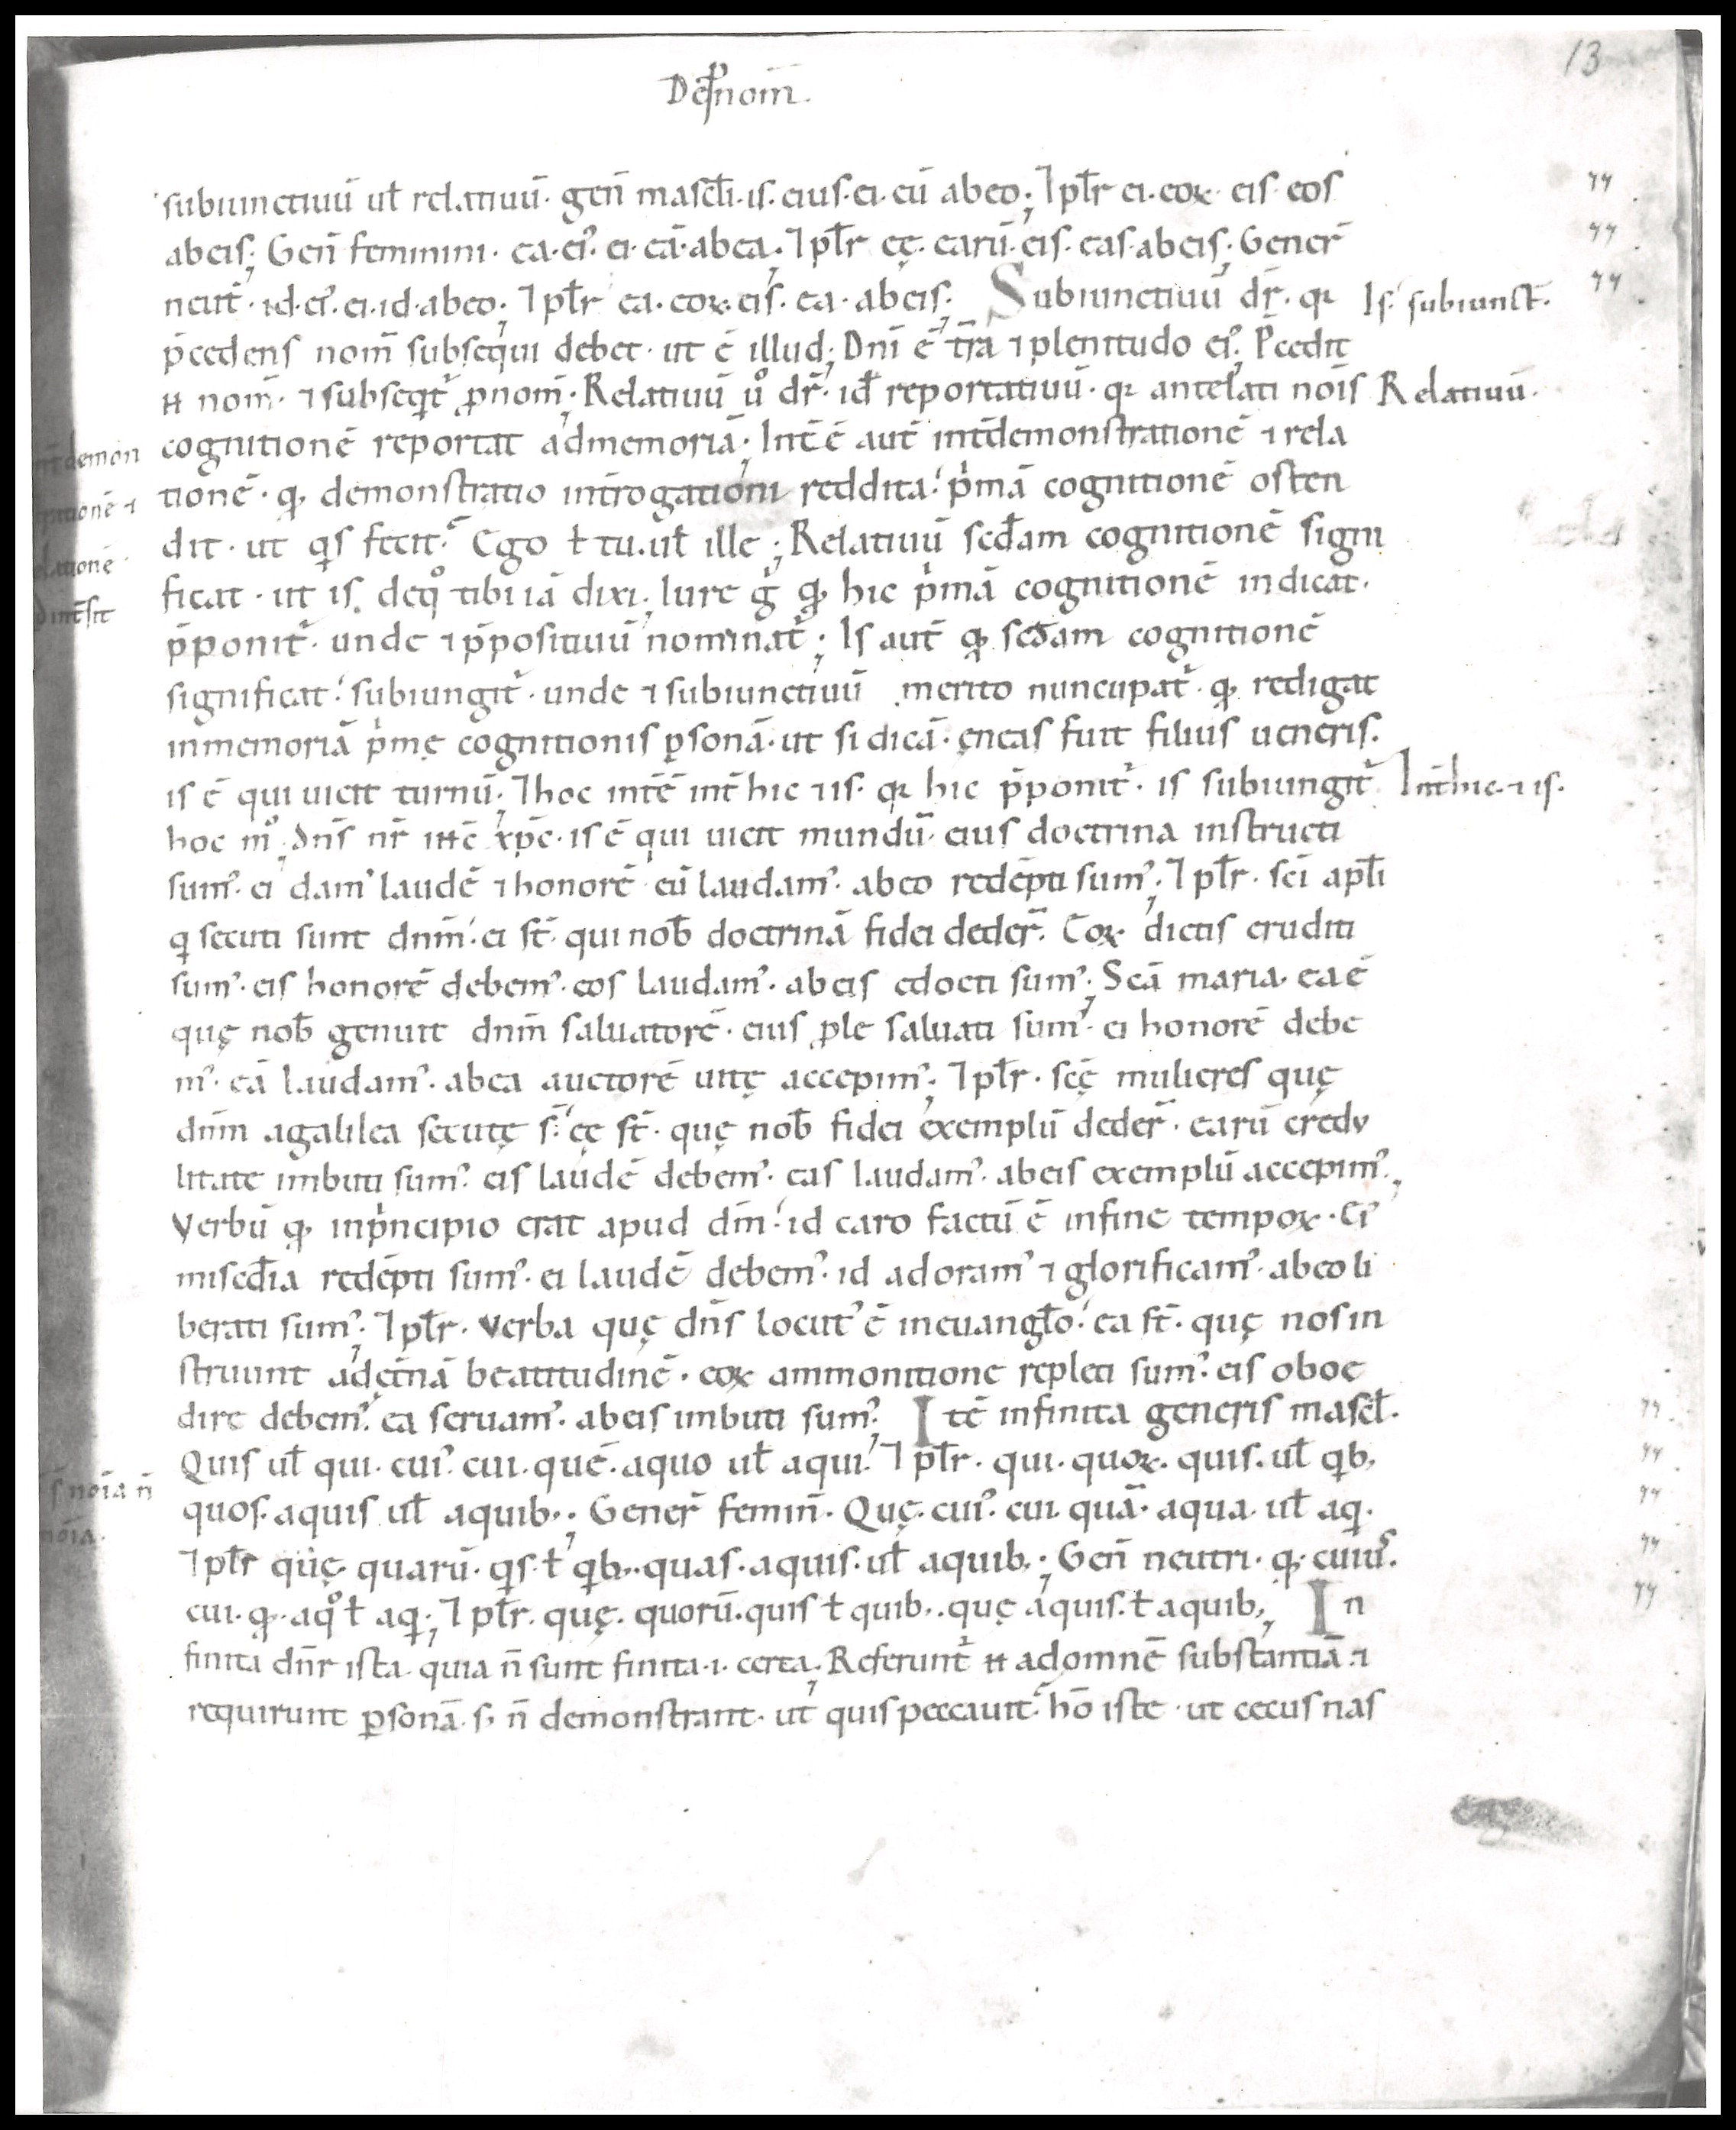 13
De ꝓnom̄.
subiunctiuū uł relatiuū. gen̄ mascłi. is. eius. ei. eū abeo; ⁊ płr ei. eoꝝ. eis. eos
abeis; Gen̄ feminini. ea. ei᾽. ei. eā. abea; ⁊ płr eę. earū. eis. eas. abeis; Gener̄
neut̄. id. ei᾽. ei. id. abeo; ⁊ płr ea. eoꝝ. eis. ea. abeis; Subiunctiuū dr̄. qr
Is subiunct̄.
p̄cedens nom̄ subsequi debet. ut ē illud; Dn̄i ē tr̄a ⁊ plenitudo ei᾽; P̄cedit
ħ nom̄. ⁊ subseqt᾽ ꝓnom̄; Relatiuū uº dr̄. id ē reportatiuū. qr antelati nōis
Relatiuū.
cognitionē reportat admemoriā; Int̄ē aut̄ int̄demonstrationē ⁊ rela
nt̄demon
tionē. qđ demonstratio int̄rogationi reddita. pͥmā cognitionē osten
ationē ⁊
dit. ut qͥs fecit? Ego ł tu. uł ille; Relatiuū scđam cognitionē signi
elationē
ficat. ut is. deqº tibi iā dixi; Iure gͥ qđ hic pͥmā cognitionē indicat.
int̄sit
p̄ponit᾽. unde ⁊ p̄positiuū nominat᾽; Is aut̄ qđ scđam cognitionē
significat. subiungit᾽. unde ⁊ subiunctiuū merito nuncupat᾽. qđ redigat
inmemoriā pͥmę cognitionis ꝑsonā. ut si dicā. ęneas fuit filius ueneris.
is ē qui uicit turnū; ⁊ hoc int̄ē int̄ hic ⁊ is. qr hic p̄ponit᾽. is subiungit᾽
Int̄ hic. ⁊ is.
hoc mº; dn̄s nr̄ xp̄c. is ē qui uicit mundū. eius doctrina instructi
sum᾽. ei dam᾽ laudē ⁊ honorē eū laudam᾽. abeo redēpti sum᾽; ⁊ płr. sc̄i apłi
qͥ secuti sunt dnm̄. ei st̄. qui nob̄ doctrinā fidei deder̄. Eoꝝ dictis eruditi
sum᾽. eis honorē debem᾽. eos laudam᾽. abeis edocti sum᾽; Sc̄a maria. ea ē
quę nob̄ genuit dnm̄ saluatorē. eius ꝓle saluati sum᾽. ei honorē debe
m᾽. eā laudam᾽. abea auctorē uitę accepim᾽; ⁊ płr. sc̄ę mulieres quę
dnm̄ agalilea secutę s̄. eę st̄. quę nob̄ fidei exemplū deder̄. earū credu
litate imbuti sum᾽. eis laudē debem᾽. eas laudam᾽. abeis exemplū accepim᾽;
Verbū qđ inpͥncipio erat apud dm̄. id caro factū ē infine tempoꝝ. Ei᾽
misedīa redēpti sum᾽. ei laudē debem᾽. id adoram᾽ ⁊ glorificam᾽. abeo li
berati sum᾽; ⁊ płr. Verba quę dn̄s locut᾽ ē ineuangło. ea st̄. quę nos in
struunt adęt̄nā beatitudinē. eoꝝ ammonitione repleti sum᾽. eis oboe
dire debem᾽. ea seruam᾽. abeis imbuti sum᾽; Itē infinita generis mascł.
Quis uł qui. cui᾽. cui. quē. aquo uł aqui. ⁊ płr. qui. quoꝝ. quis. uł qͥb;
quos. aquis uł aquib;. Gener̄ femin̄. Quę. cui᾽. cui. quā. aqua. uł aqͥ.
⁊ płr quę. quarū. qͥs. ł qͥb;. quas. aquis. uł aquib;. Gen̄ neutri. qđ. cuius.
cui. qđ. aqº ł aqͥ; ⁊ płr. quę. quorū. quis ł quib;. quę aquis. ł aquib; In
finita dn̄r ista. quia n̄ sunt finita .i. certa; Referunt᾽ ħ adomnē substantiā. ⁊
requirunt ꝑsonā. s; n̄ demonstrant. ut quis peccauit? hō iste. ut cecus nas